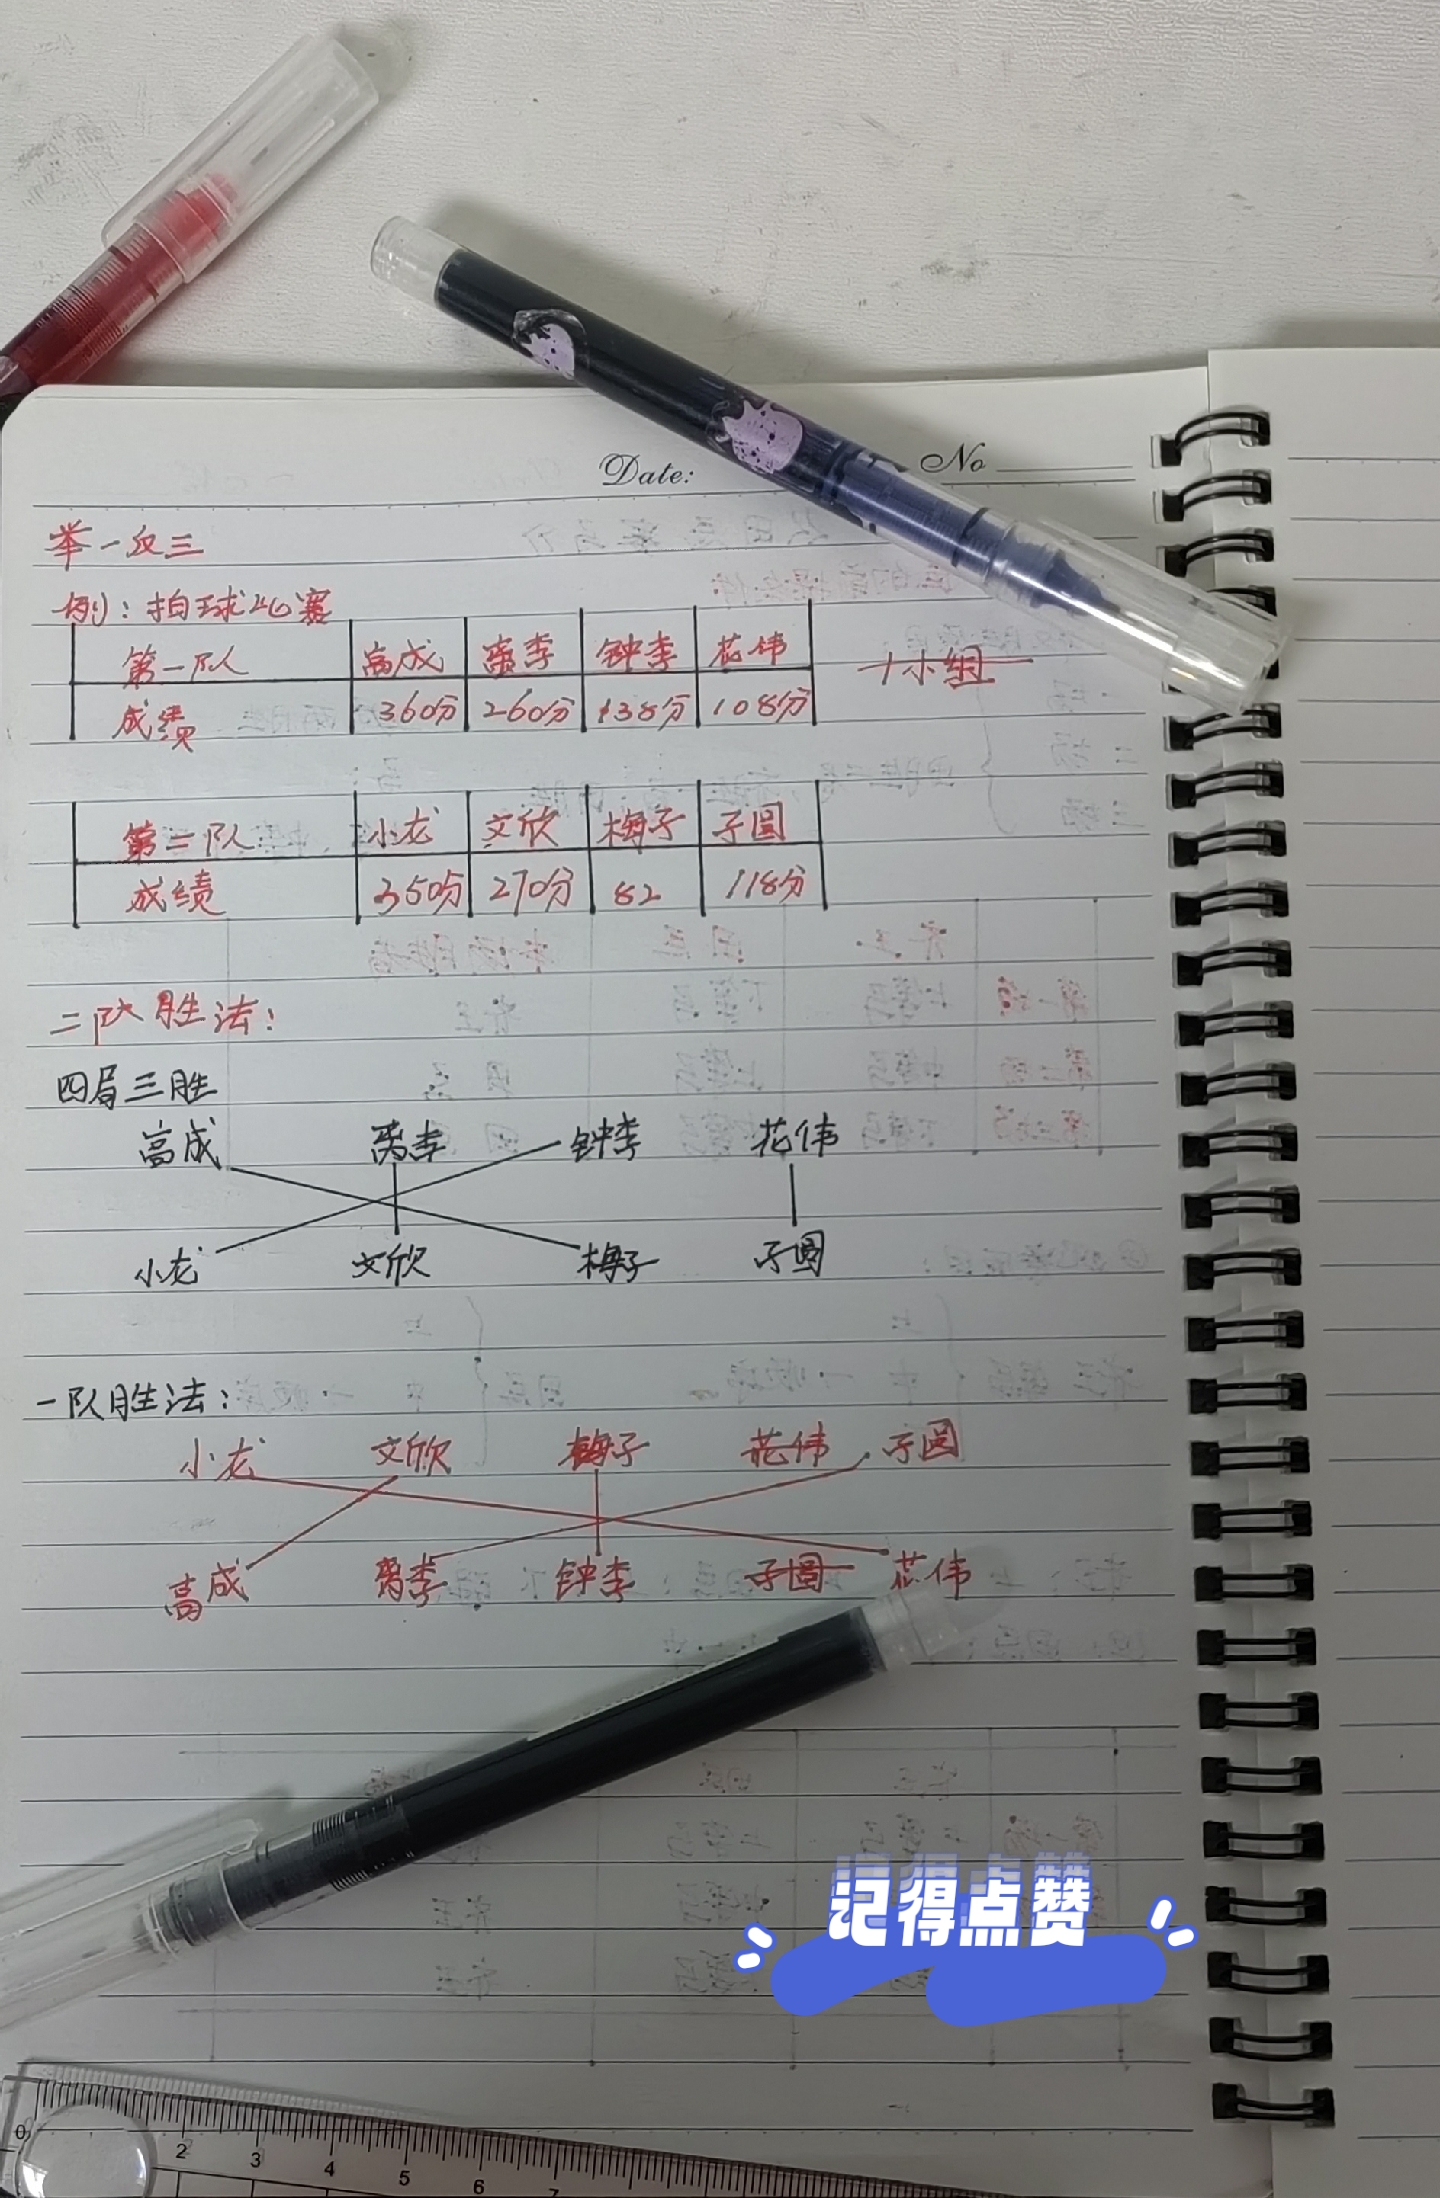 Date: No
举一反三
例：拍球比赛
第一队 高成 离李 钟李 花伟 十小组
成绩 360分 260分 138分 108分
第二队 小龙 文欣 梅子 子圆
成绩 350分 270分 82 118分
二队胜法：
四局三胜
高成 离李 钟李 花伟
小龙 文欣 梅子 子圆
一队胜法：
小龙 文欣 梅子 花伟 子圆
高成 离李 钟李 子圆 花伟
记得点赞
0 2 3 4 5 6 7